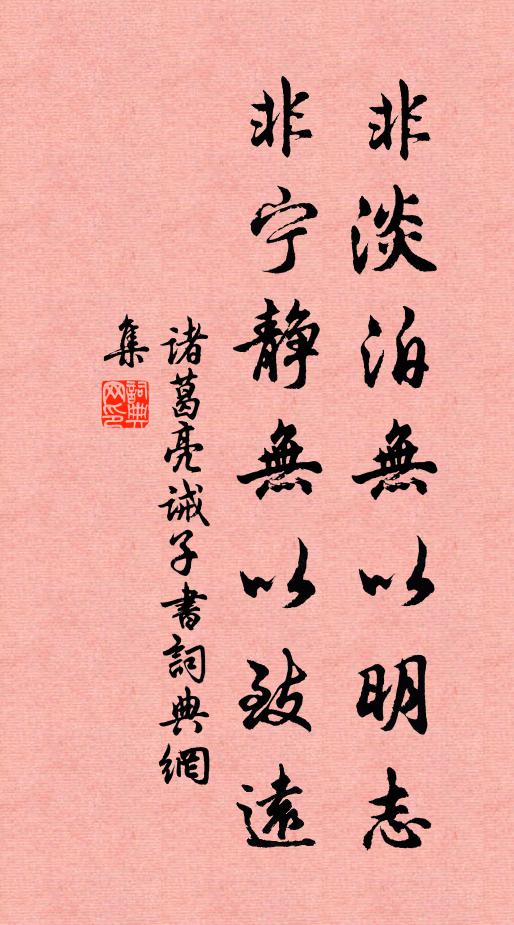 非淡泊無以明志
非宁静無以致遠
诸葛亮诫子書詞典網
集
詞典網印